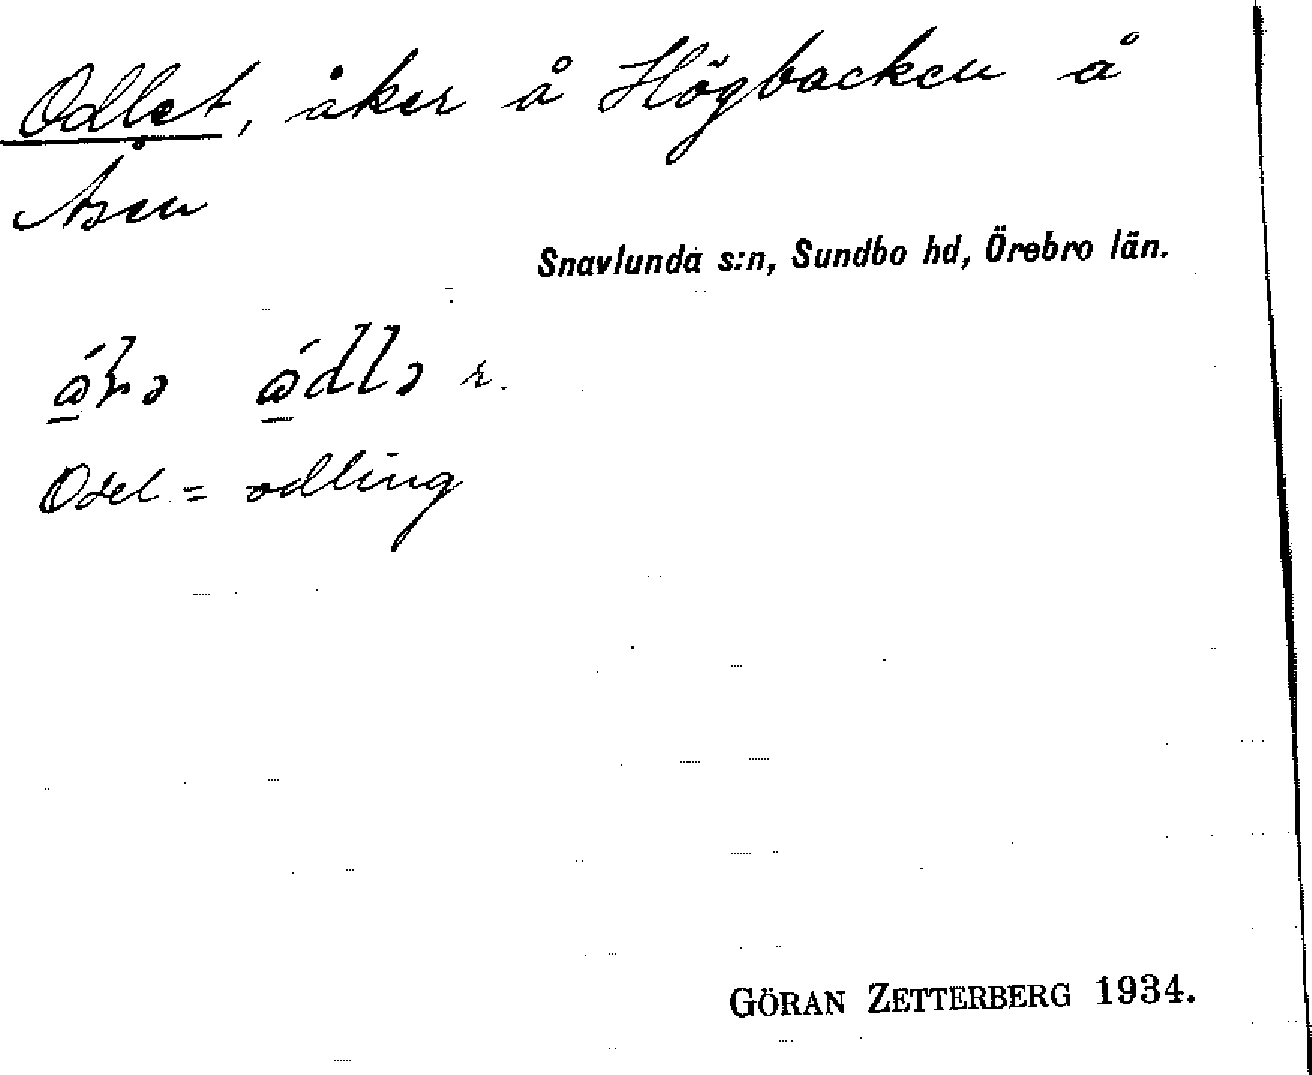 Odlet, åker å Högbacken å
Åsen
Snavlunda s:n, Sundbo hd, Örebro län.
Odel = odling
GÖRAN ZETTERBERG 1934.